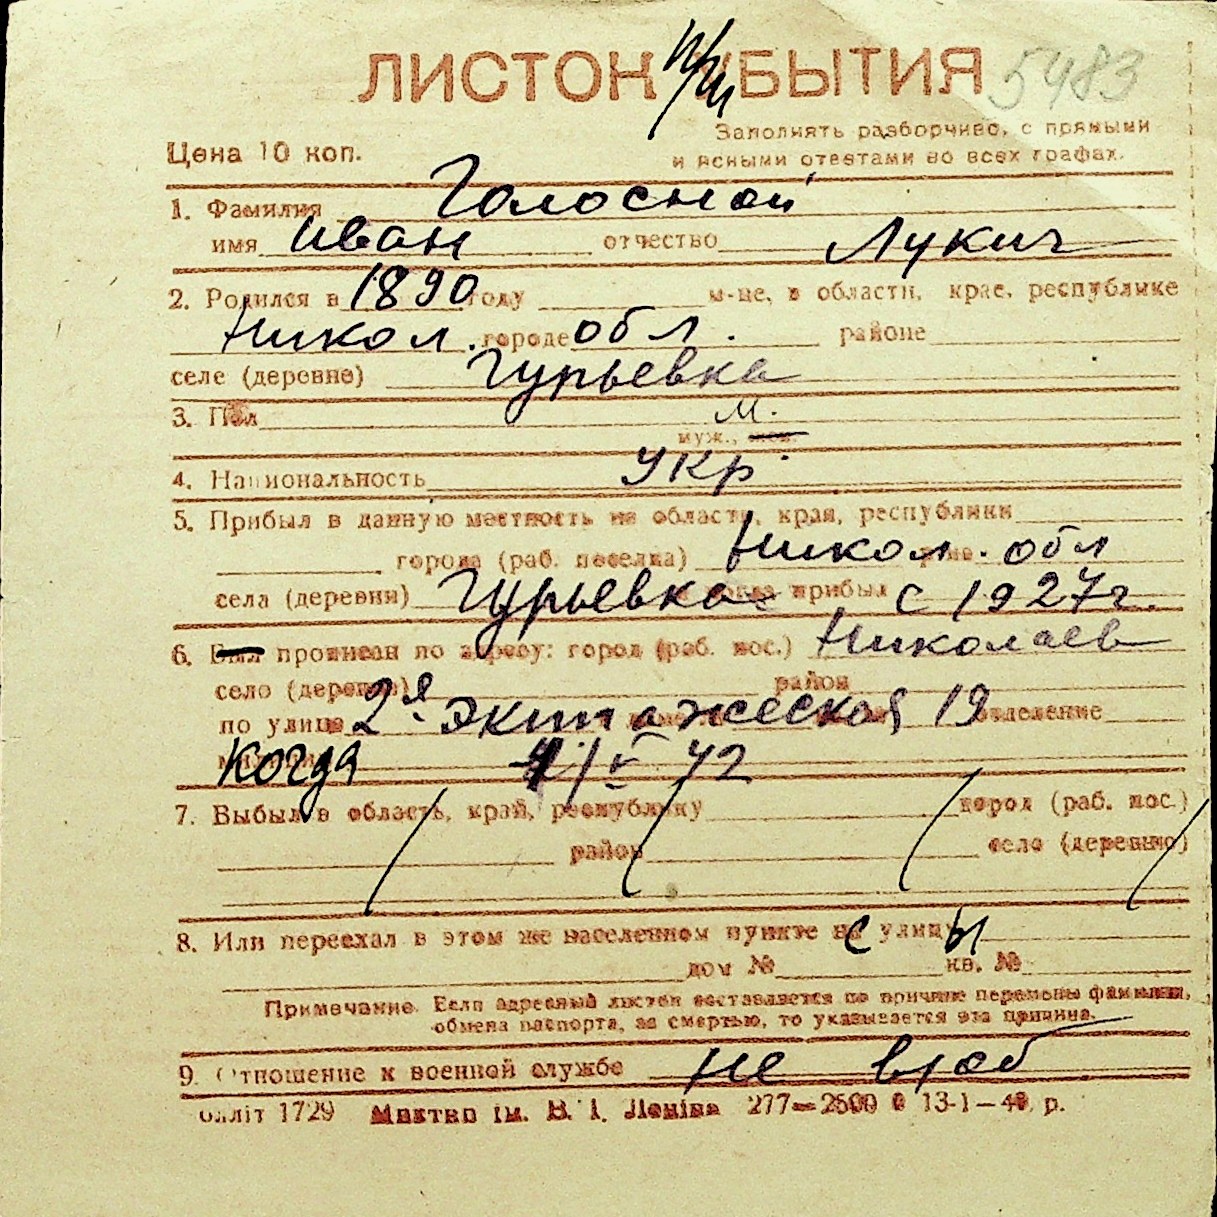 ЛИСТОК ПРИБЫТИЯ 5483
Заполнять разборчиво, с прямыми
Цена 10 коп. и ясными ответами во всех графах.
1. Фамилия Голосной
имя Иван отчество Лукич
2. Родился в 1890 году м-це, в области, крае, республике
Никол. городе обл. районе
селе (деревне) Гурьевка
3. Пол м.
муж., жен.
4. Национальность укр.
5. Прибыл в данную местность из области, края, республики
города (раб. поселка) Никол. обл
села (деревни) Гурьевка прибыл с 1927 г.
6. Был прописан по адресу: город (раб. пос.) Николаев
село (деревня) район
по улице 2я Экипажеская 19 отделение
когда 4/V 42
7. Выбыл в область, край, республику город (раб. пос.)
район село (деревню)
8. Или переехал в этом же населенном пункте с улицы
дом № кв. №
Примечание. Если адресный листок составляется по причине перемены фамилии,
обмена паспорта, за смертью, то указывается эта причина.
9. Отношение к военной службе не
1729 ім. В. І. Леніна 277—2500 13-1—40 р.